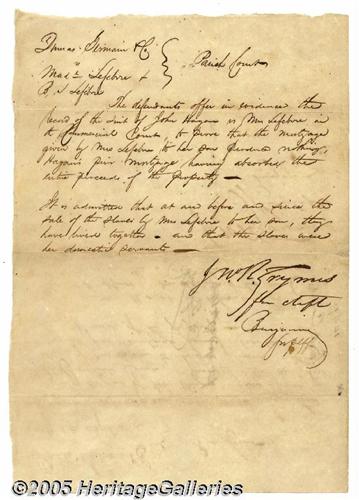 Dumas Germain & Co
vs Parish Court
Mad.e Lefebre &
B. S. Lefebre
The defendants offer in evidence the
record of the Suit of John Hagan vs Mrs Lefebre in
Commercial Court, to prove that the mortgage
given by Mrs Lefebre to her Son produced nothing,
Hagan's prior mortgage having absorbed the
entire proceeds of the Property —
It is admitted that at and before and since the
sale of the slaves by Mrs Lefebre to her Son, they
have lived together — and that the slaves were
her domestic servants —
J W R Grymes
for deft
Benjamin
©2005 HeritageGalleries